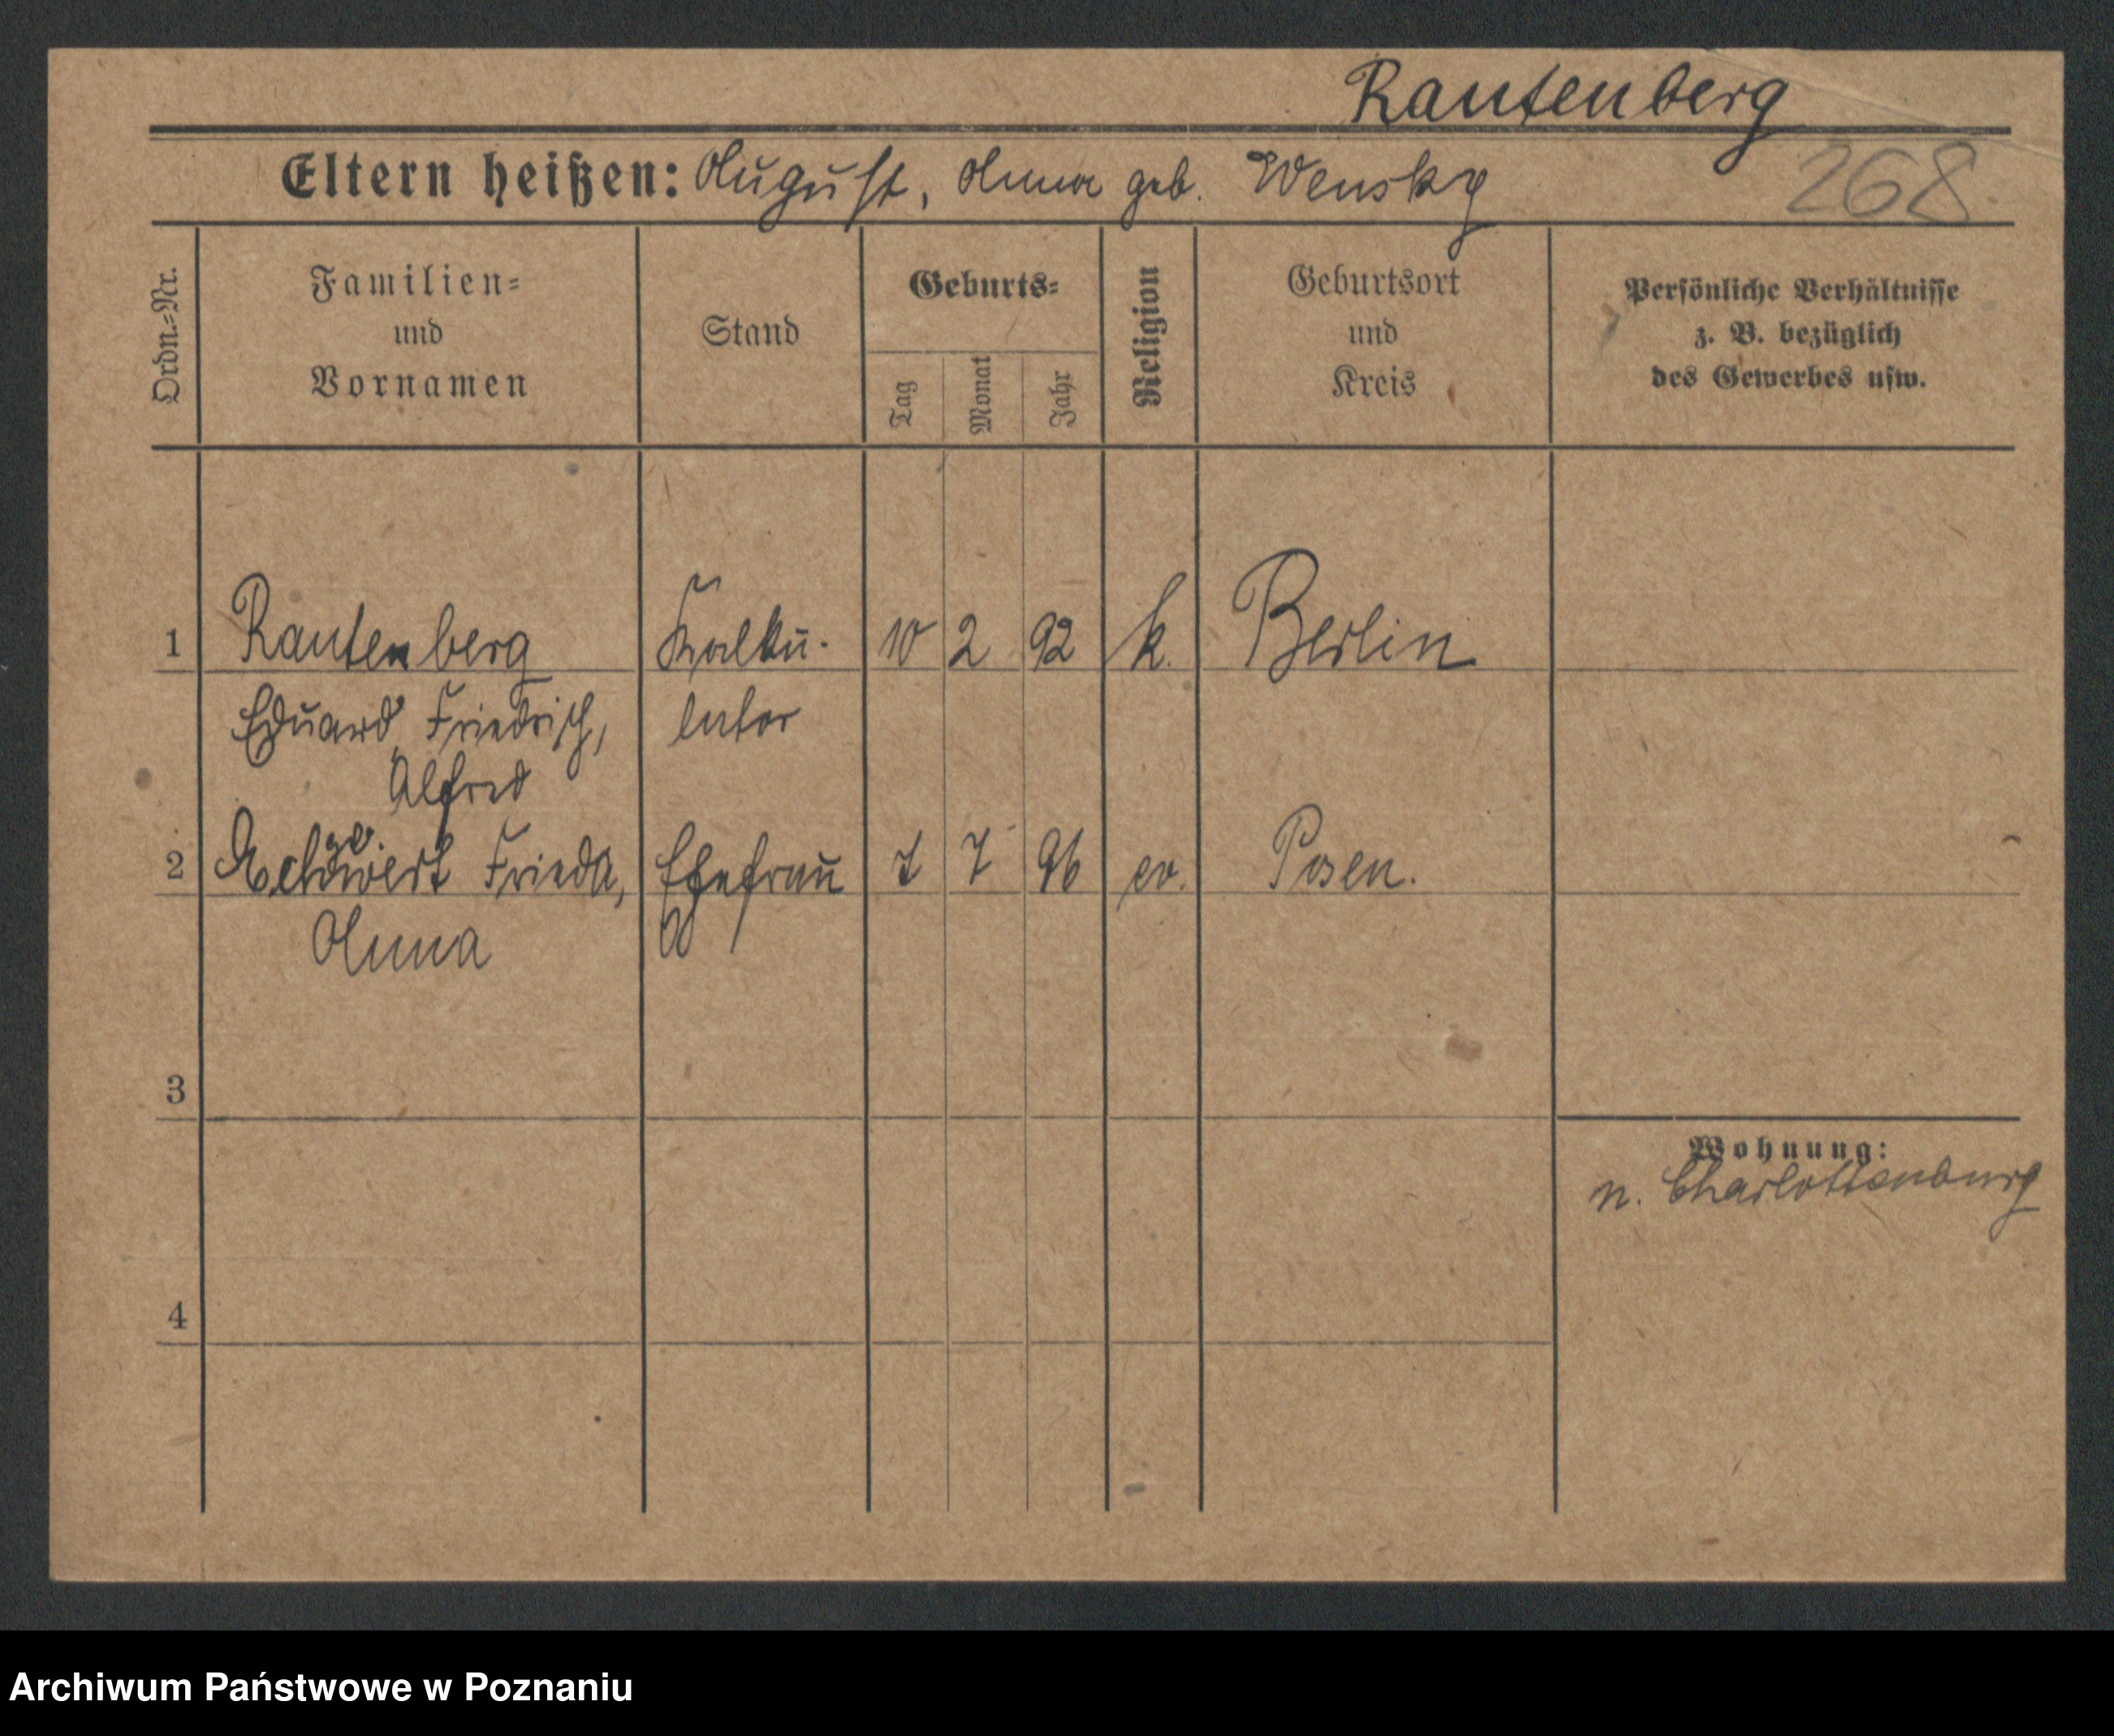 Rautenberg
Eltern heißen: August, Anna geb. Wensky
268
Ordn.-Nr.
Familien- und Vornamen
Stand
Geburts-
Tag
Monat
Jahr
Religion
Geburtsort und Kreis
Persönliche Verhältnisse z. B. bezüglich des Gewerbes usw.
1 Rautenberg Kalku- 10 2 92 k. Berlin
Eduard, Friedrich, lator
Alfred
2 Frieda, Ehefrau 7 7 96 ev. Posen.
Anna
3
Wohnung:
n. Charlottenburg
4
Archiwum Państwowe w Poznaniu